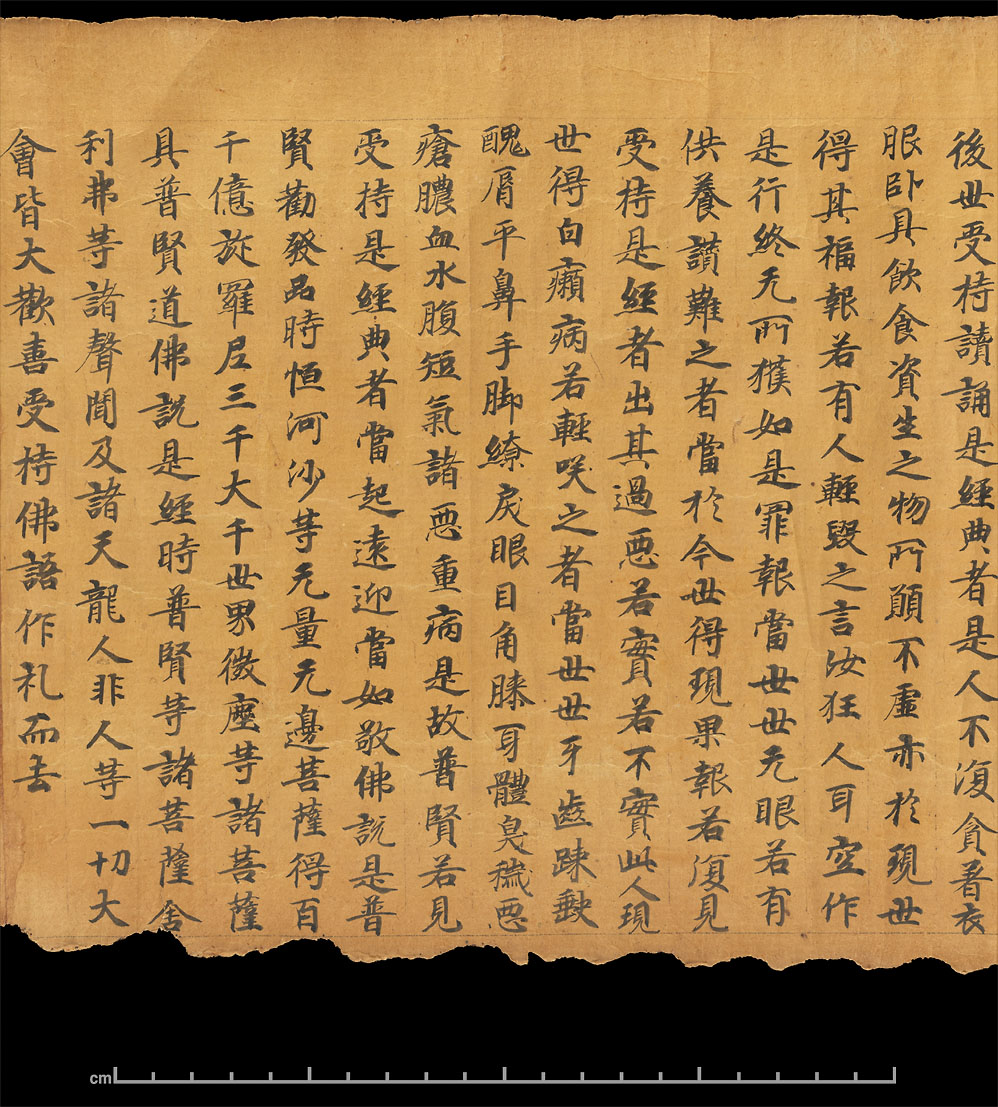 後世受持讀誦是經典者是人不復貪著衣
服臥具飲食資生之物所願不虛亦於現世
得其福報若有人輕毀之言汝狂人耳空作
是行終无所獲如是罪報當世世无眼若有
供養讃難之者當於今世得現果報若復見
受持是經者出其過惡若實若不實此人現
世得白癩病若輕咲之者當世世牙齒踈缺
醜脣平鼻手脚繚戾眼目角睞身體臭穢惡
瘡膿血水腹短氣諸惡重病是故普賢若見
受持是經典者當起遠迎當如敬佛說是普
賢勸發品時恒河沙等无量无邊菩薩得百
千億旋羅尼三千大千世界微塵等諸菩薩
具普賢道佛說是經時普賢等諸菩薩舍
利弗等諸聲聞及諸天龍人非人等一切大
會皆大歡喜受持佛語作礼而去
cm